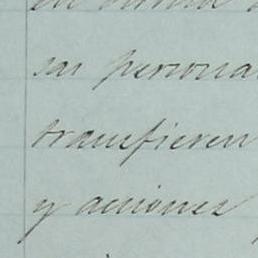 su persona
transfieren
y acciones